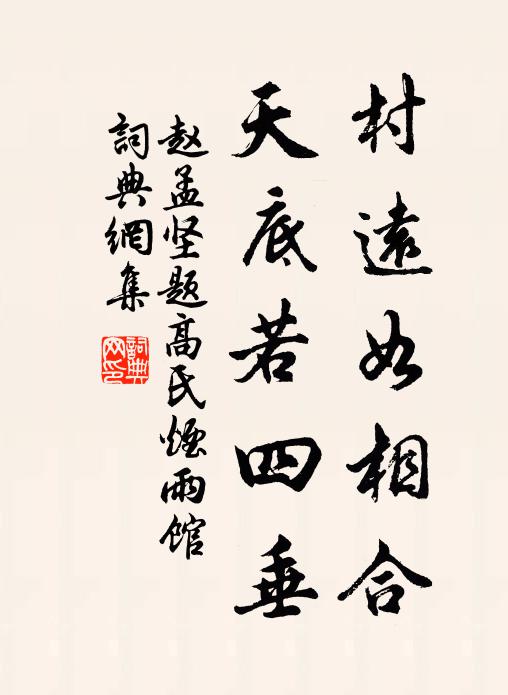 村遠如相合
天底若四垂
赵孟坚题高氏煙雨馆
詞典網集
詞典网印